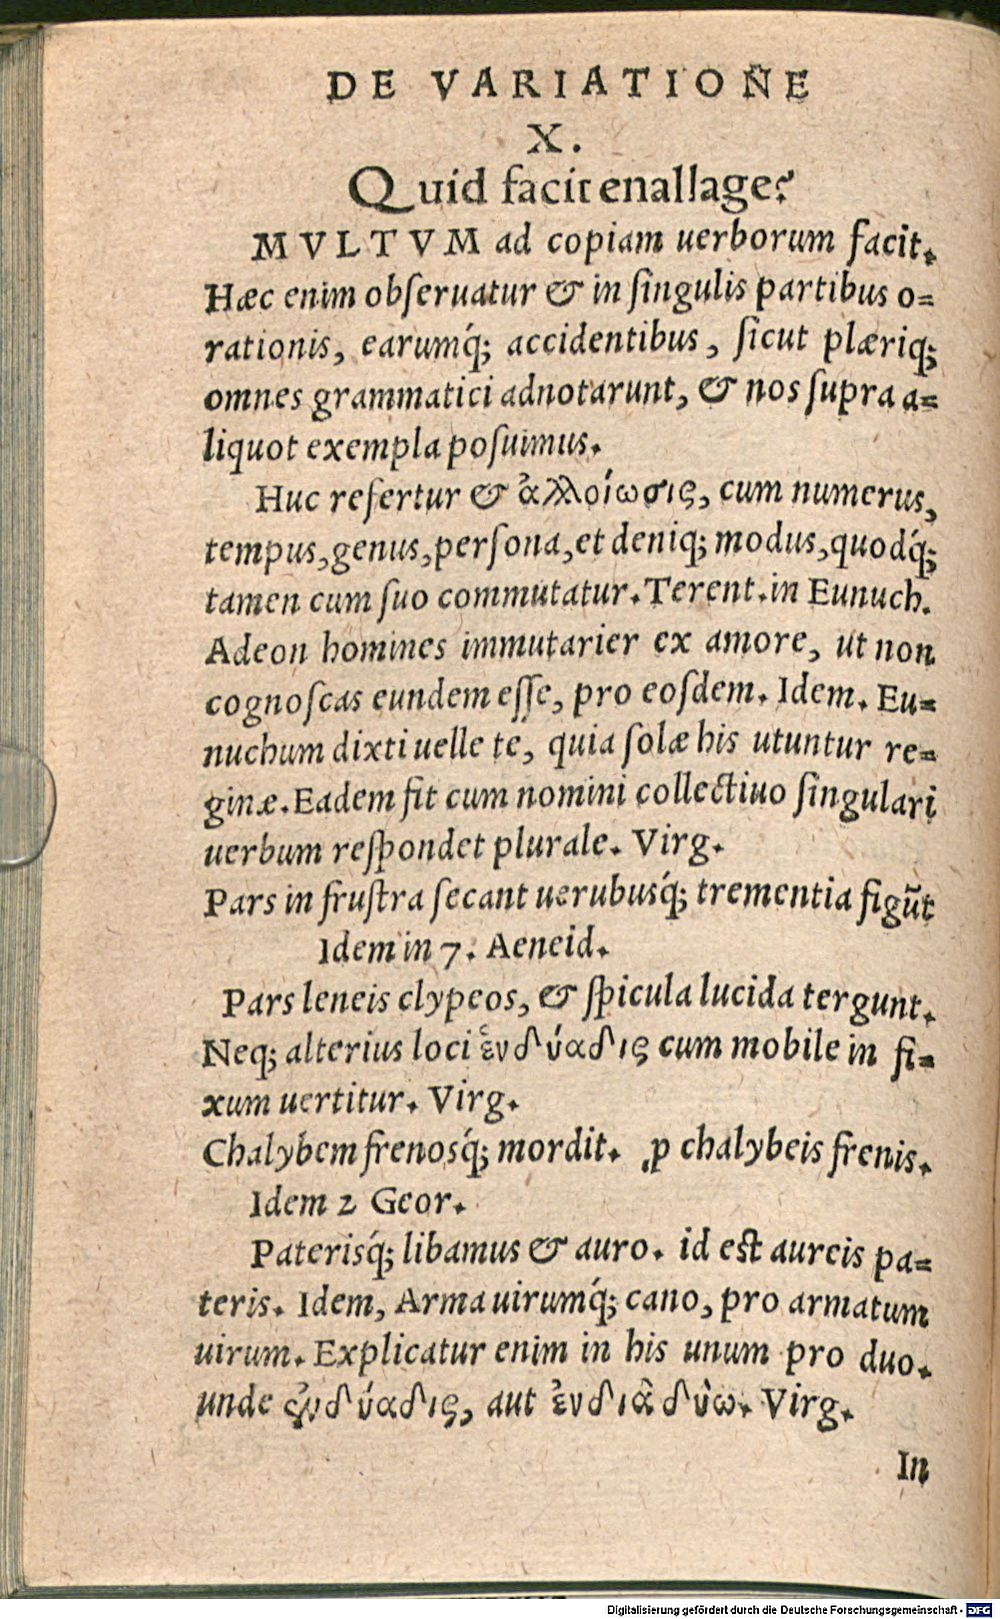 DE VARIATIONE
X.
Quid facit enallage?
MVLTVM ad copiam uerborum facit.
Hæc enim obſeruatur & in ſingulis partibus o=
rationis, earumq́; accidentibus, ſicut plæriq;
omnes grammatici adnotarunt, & nos ſupra a=
liquot exempla poſuimus.
Huc refertur & ἀλλοίωσις, cum numerus,
tempus, genus, perſona, et deniq; modus, quodq́;
tamen cum ſuo commutatur. Terent. in Eunuch.
Adeon homines immutarier ex amore, ut non
cognoſcas eundem eſſe, pro eoſdem. Idem. Eu=
nuchum dixti uelle te, quia ſolæ his utuntur re=
ginæ. Eadem fit cum nomini collectiuo ſingulari
uerbum reſpondet plurale. Virg.
Pars in fruſtra ſecant uerubusq́; trementia figūt
Idem in 7. Aeneid.
Pars leneis clypeos, & ſpicula lucida tergunt.
Neq; alterius loci ἓνδύαδις cum mobile in fi=
xum uertitur. Virg.
Chalybem frenosq́; mordit. ꝓ chalybeis frenis.
Idem 2 Geor.
Paterisq́; libamus & auro. id eſt aureis pa=
teris. Idem, Arma uirumq́; cano, pro armatum
uirum. Explicatur enim in his unum pro duo.
unde ἓνδύαδις, aut ἓνδιᾶδύω. Virg.
In
Digitalisierung gefördert durch die Deutsche Forschungsgemeinschaft - DFG